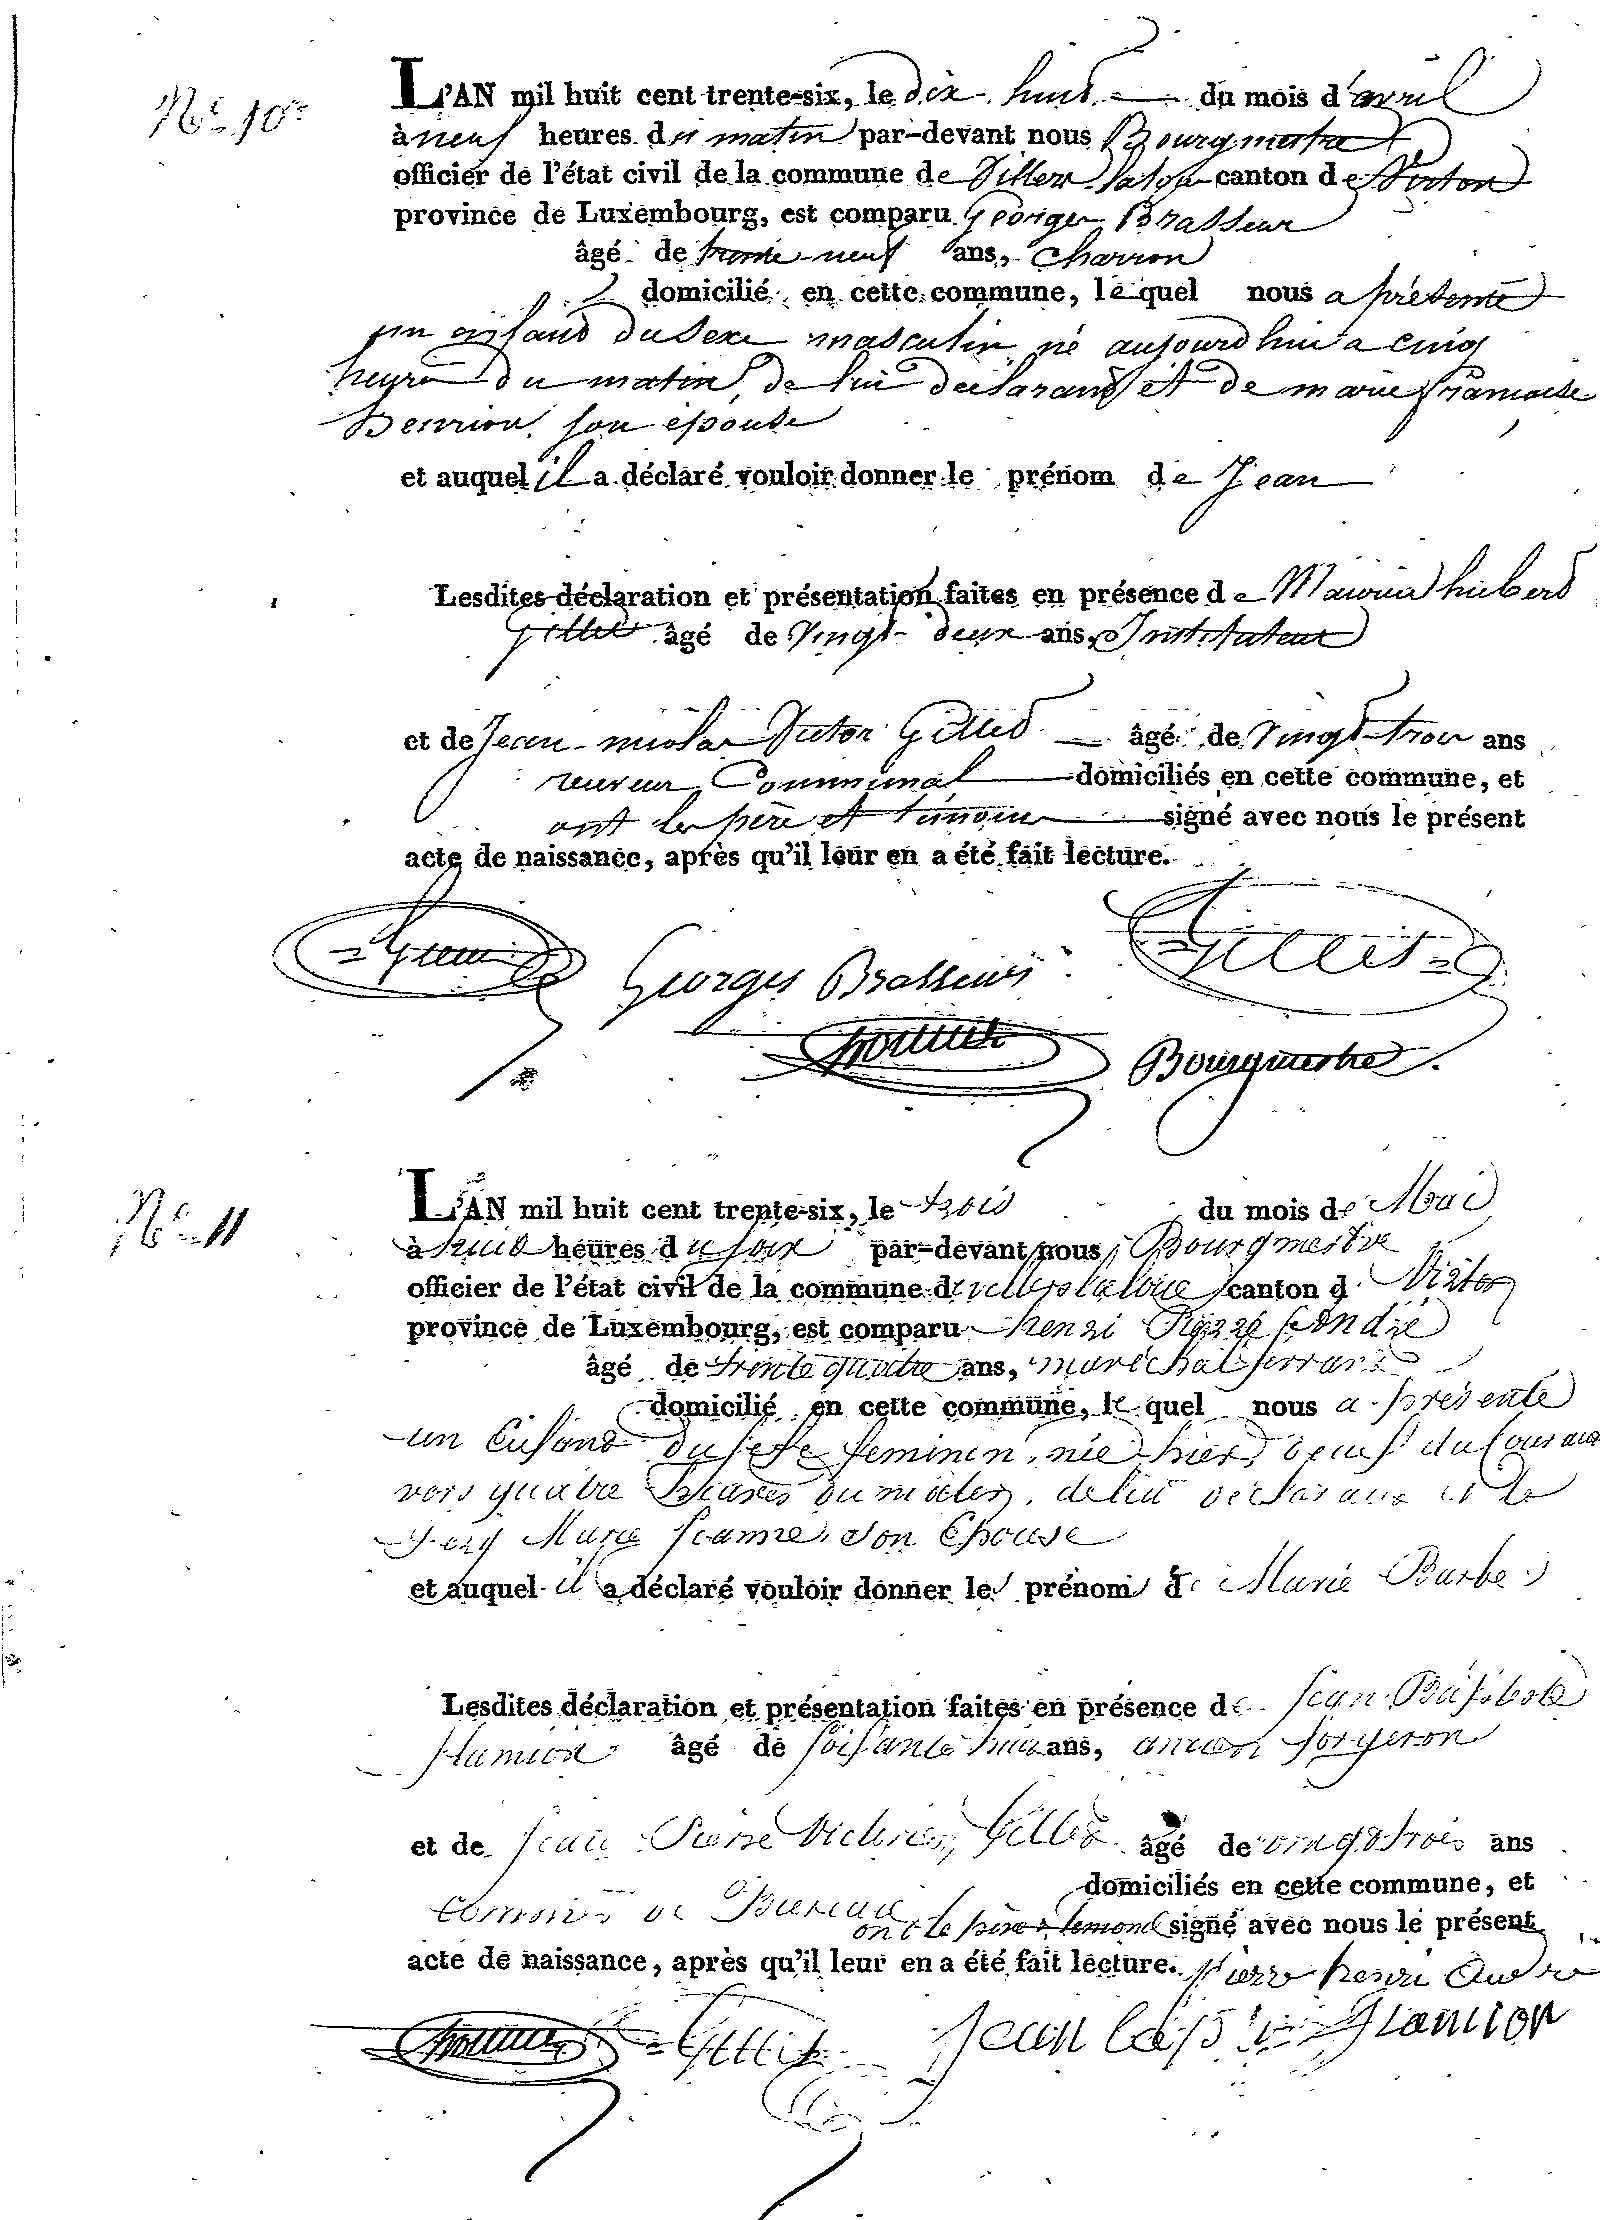 N° 10
L'AN mil huit cent trente-six, le dix huit du mois d'avril
à neuf heures du matin par-devant nous Bourgmestre
officier de l'état civil de la commune de Villers la loue canton de Virton
province de Luxembourg, est comparu Georges Brasseur
âgé de trente neuf ans, charron
domicilié en cette commune, lequel nous a présenté
un enfant du sexe masculin né aujourd'hui a cinq
heures du matin, de lui declarant et de marie françoise
son épouse
et auquel il a déclaré vouloir donner le prénom de Jean
Lesdites déclaration et présentation faites en présence de hubert
Gillet âgé de vingt deux ans, Instituteur
et de Jean nicolas Victor Gillet âgé de vingt trois ans
receveur Communal domiciliés en cette commune, et
ont les père et témoins signé avec nous le présent
acte de naissance, après qu'il leur en a été fait lecture.
Georges Brasseur Gillet
Bourgmestre.
N° 11
L'AN mil huit cent trente-six, le trois du mois de Mai
à huit heures du soir par-devant nous Bourgmestre
officier de l'état civil de la commune de villers la loue canton d Virton
province de Luxembourg, est comparu henri Pierre andré
âgé de trente quatre ans, maréchal ferrant
domicilié en cette commune, le quel nous a présenté
un Enfant du sexe feminin, née hier du Courant
vers quatre heures du matin, de lui déclarant et de
Marie Jeanne son Epouse
et auquel il a déclaré vouloir donner les prénom d Marie Barbe
Lesdites déclaration et présentation faites en présence de Jean Baptiste
Flamion âgé de soisante huit ans, ancien forgeron
et de Jean Pierre Gillet âgé de vingt trois ans
domiciliés en cette commune, et
Commis de Bureau ont le père & temoins signé avec nous le présent
acte de naissance, après qu'il leur en a été fait lecture. Pierre henri André
Gillet Jean flamion